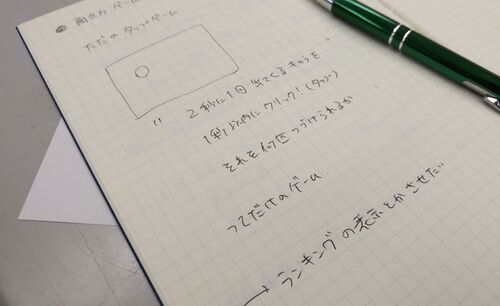 耐久力ゲーム
ただのタップゲーム
2秒に1回出てくるキャラを
1秒以内にクリック!(タップ)
それを何回つづけられるか
ってだけのゲーム
→ ランキングの表示とかさせた